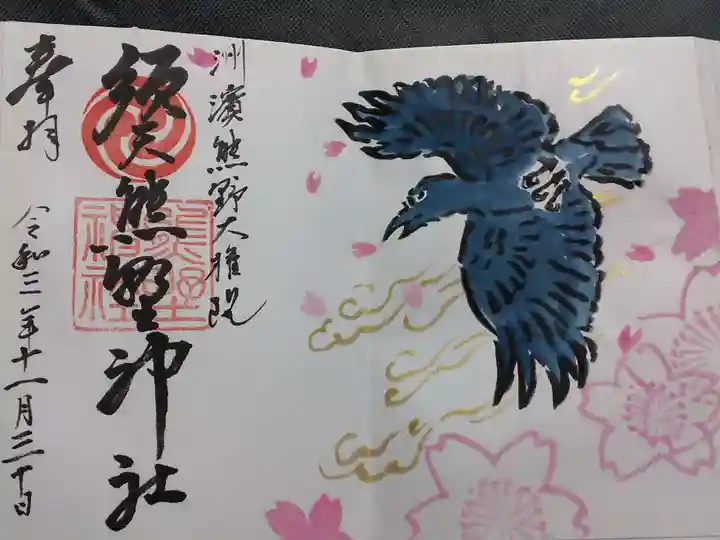 洲濱熊野大権現
須天熊野神社
奉拝
令和三年十一月三十日